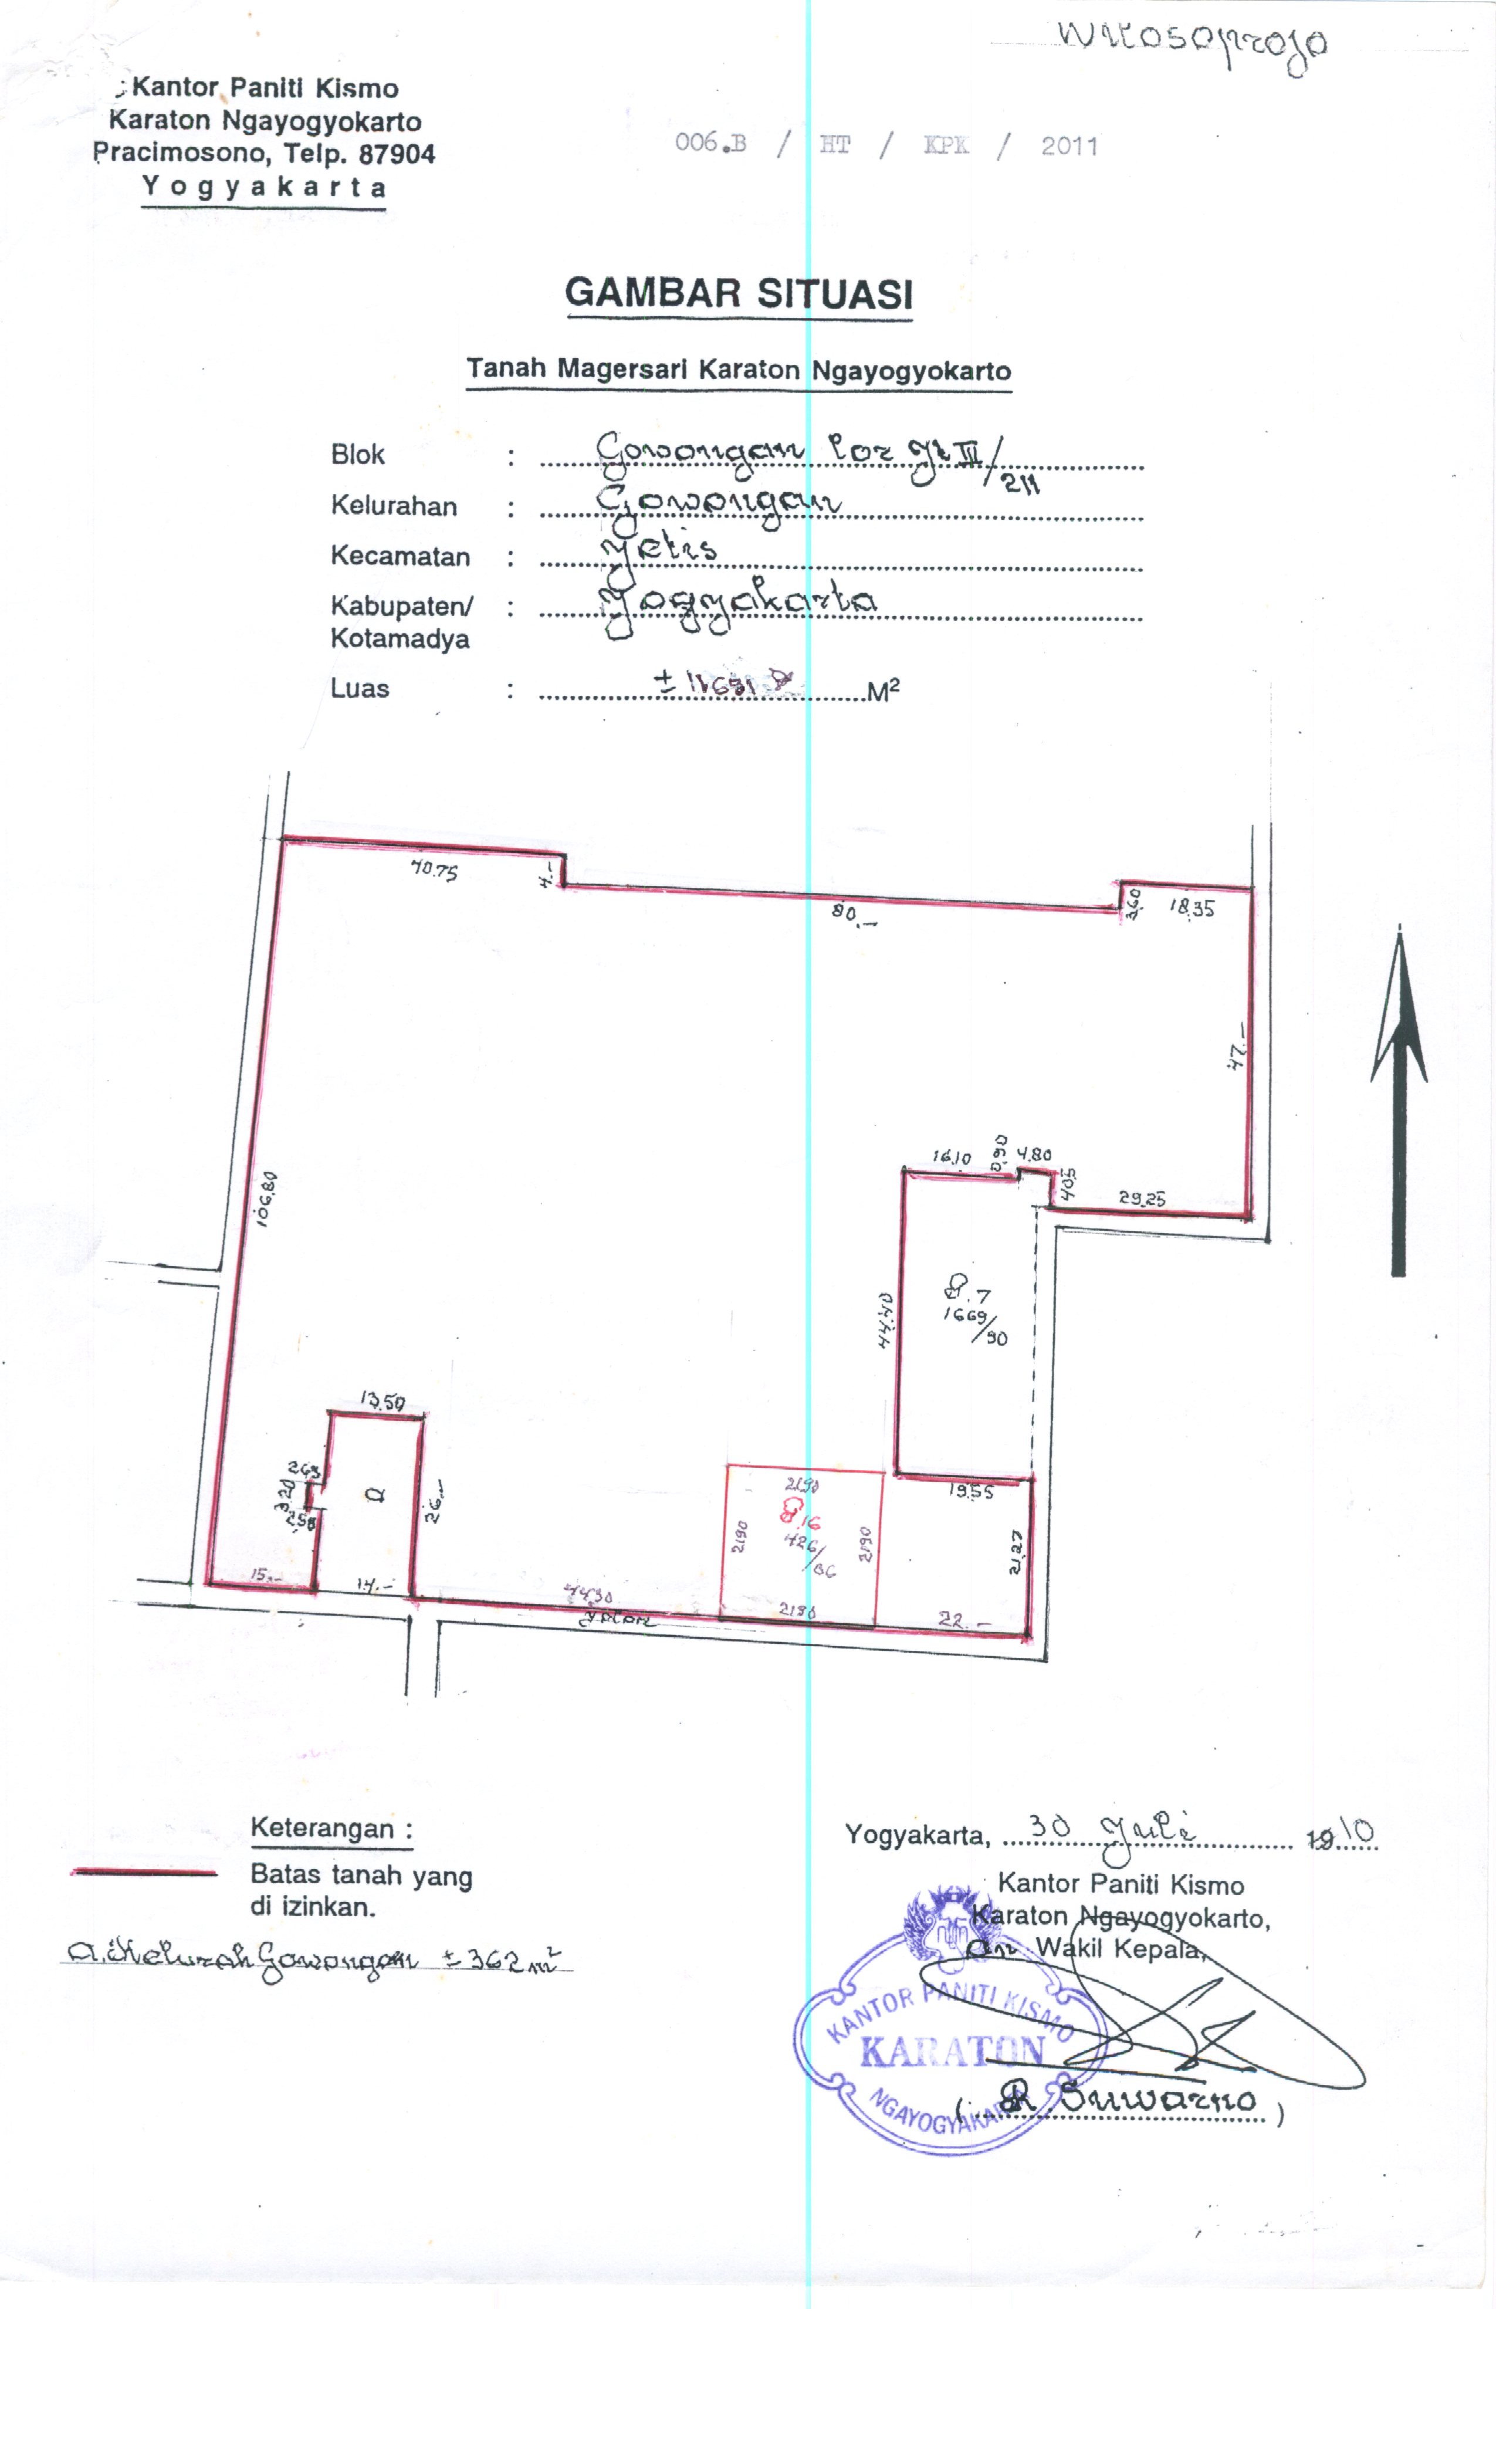 Witosoprojo
Kantor Paniti Kismo
Karaton Ngayogyokarto
Pracimosono, Telp. 87904
Yogyakarta
006.B / HT / KPK / 2011
GAMBAR SITUASI
Tanah Magersari Karaton Ngayogyokarto
Blok : Gowongan Lor Jt III/211
Kelurahan : Gowongan
Kecamatan : Jetis
Kabupaten/ : Yogyakarta
Kotamadya
Luas : ± 11691 M²
40.75
4.-
80.-
3.60
18.35
47.-
106.80
16.10
0.90
4.80
4.05
29.25
44.40
.7
1669/90
13.50
2.65
3.20
2.50
a
26.-
19.55
21.90
.16
426/86
21.90
21.90
21.27
15.-
14.-
44.30
21.90
22.-
Jalan
Keterangan :
Batas tanah yang
di izinkan.
a. Kelurah Gowongan ± 362 m²
Yogyakarta, 30 Juli 1910
Kantor Paniti Kismo
Karaton Ngayogyokarto,
an Wakil Kepala,
KANTOR PANITI KISMO
KARATON
NGAYOGYAKARTA
( R. Suwarno )